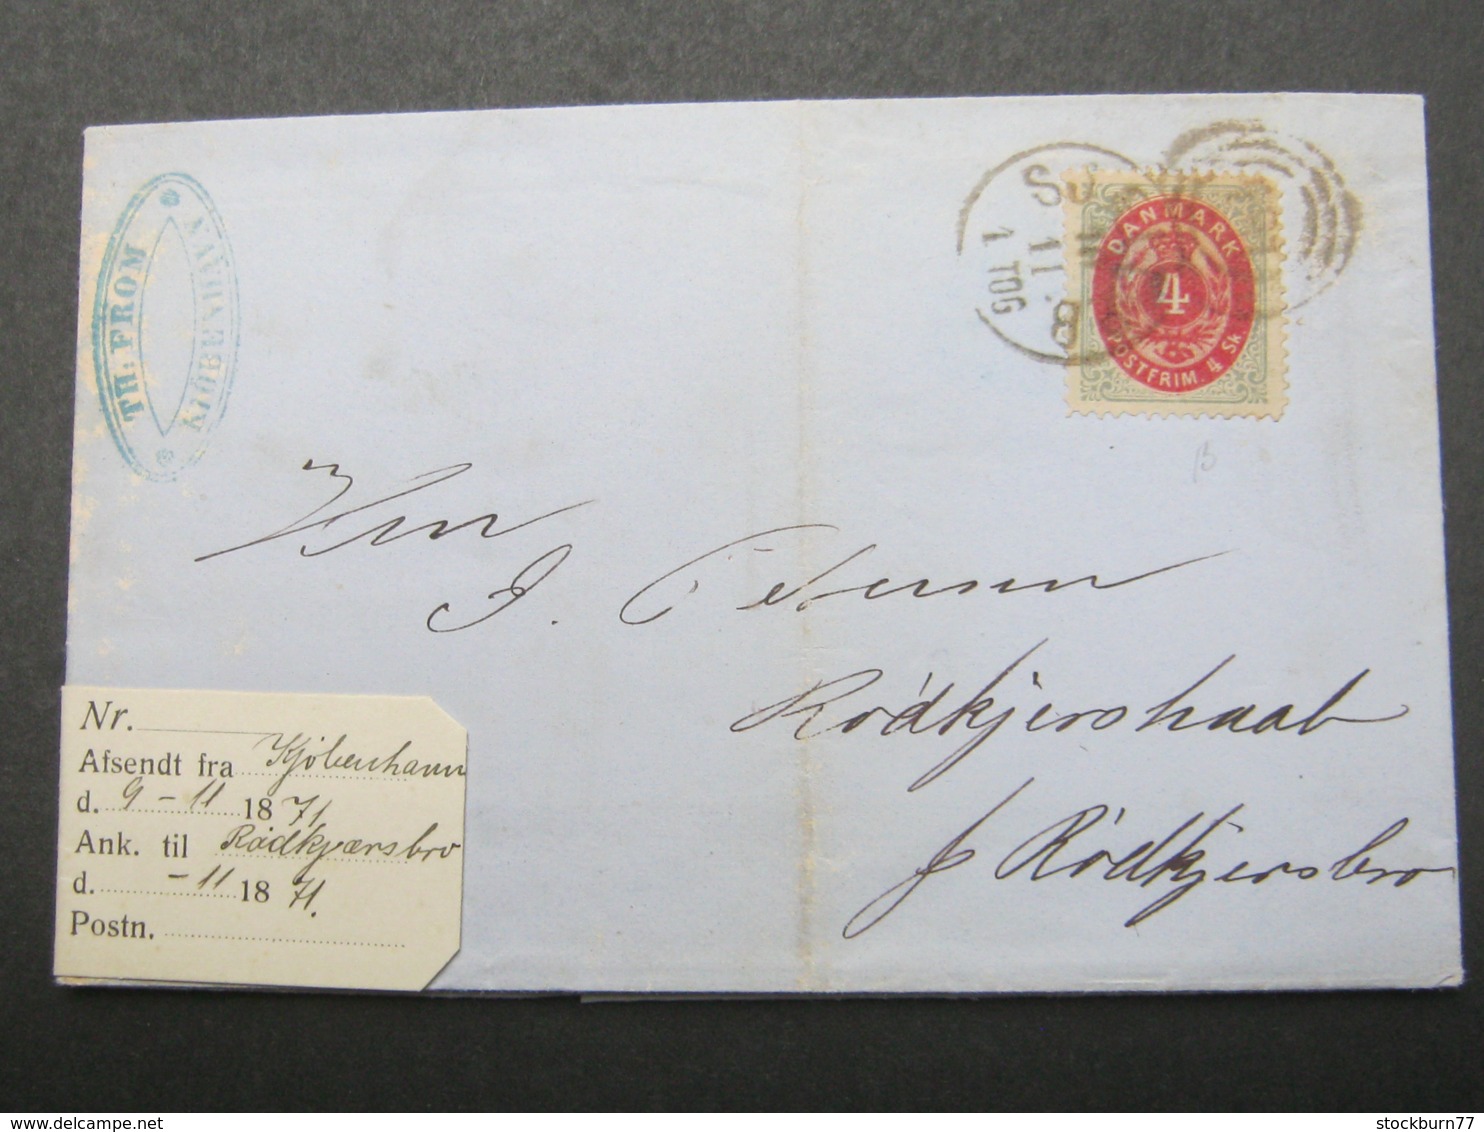 TH: FROM
KIÖBENHAVN
1 TOG
11
8
DANMARK
4
POSTFRIM. 4 Sk
Hrn
J. Petersen
Rödkjershaab
p Rödkjersbro
Nr.
Afsendt fra Kjöbenhavn
d. 9-11 1871
Ank. til Rødkjærsbro
d. -11 1871.
Postn.
stockburn77